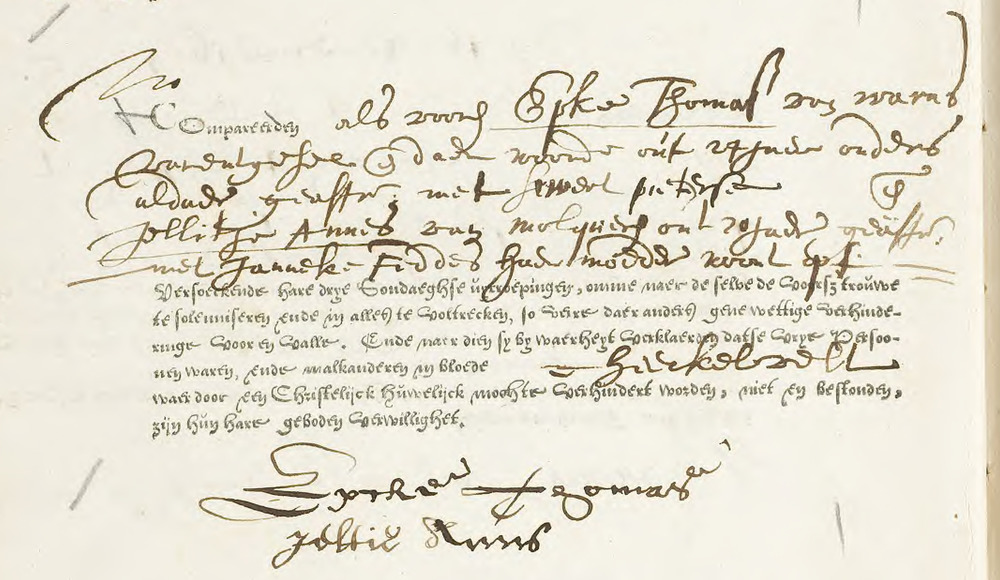 Compareerden als vooren Epke Thomas van warns
varentgesel en daer woonde out 27 Jaer ouders
aldaer geasst: met sweer pieterse en
Jellitje Annes van molqueren out 20 Jaer geasst.
met Janneke Feddes haer moeder woont opt
Versoeckende hare drye Sondaeghse uytroepingen, omme naer de selve de voorsz trouwe
te solenniseren ende in alles te voltrecken, so verre daer anders gene wettige verhinde-
ringe voor en valle. Ende naer dien sy by waerheyt verklaerden datse vrye Persoo-
nen waren, ende malkanderen in bloede
waer door een Christelijck huwelijck mochte verhindert worden, niet en bestonden,
zijn hun hare geboden verwillighet.
Epcke Tomas
Jeltie Anns